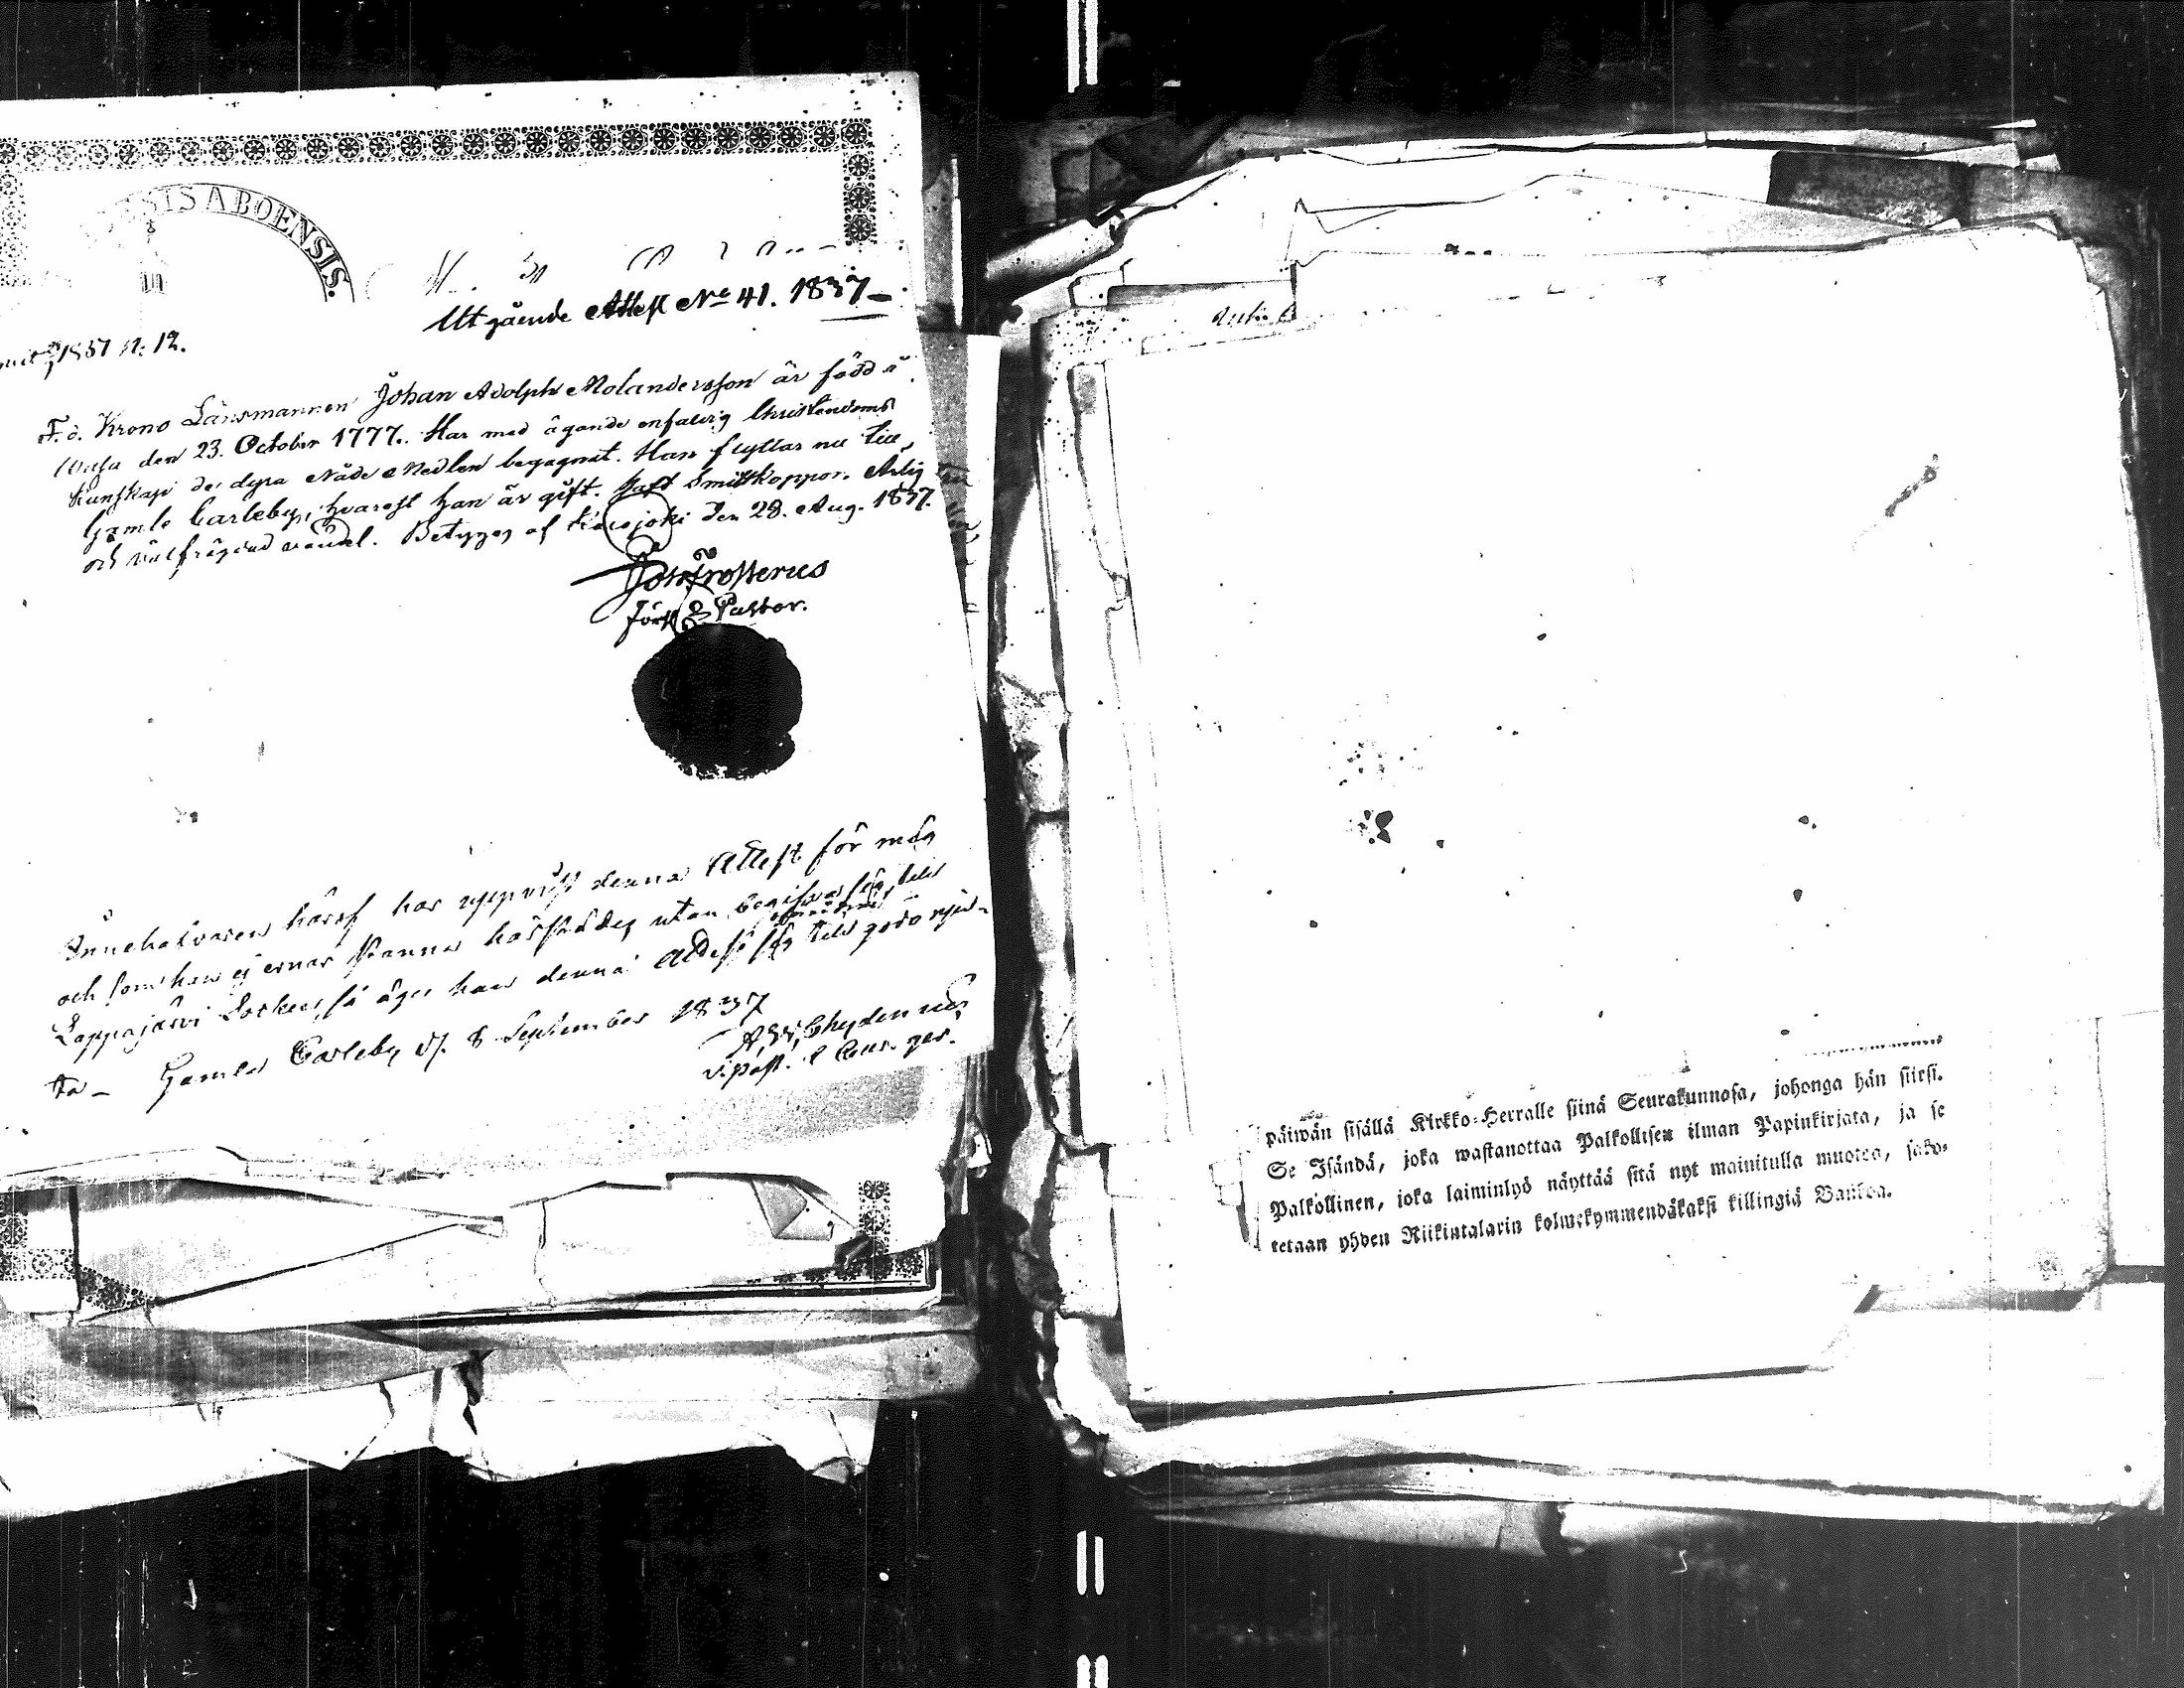 ESIS ABOENSIS.
Utgående Attest No 41. 1837
1837 N: 12.
F. d. Krono Länsmannen Johan Adolph Molandersson är född i
Wasa den 23. October 1777. Har med ägande enfaldig Christendoms
kunskap de dyra Nåde Medlen begagnat. Han flyttar nu till
Gamle Carleby, hvarest han är gift. Haft Smittkoppor. Ärlig
och välfrägdad vandel. Betygas af Kausjoki den 28. Aug. 1837.
Frosterus
Pastor.
Innehafvaren häraf har uppvist denna Attest för mig
och som han ej ernar stanna härstädes utan begifva sig till
Lappajärvi Socken, så äger han denna till godo nju-
ta - Gamla Carleby d. 8 September 1837
Chydenius
v. past.
päiwän sisällä Kirkko-Herralle siinä Seurakunnasa, johonga hän siirsi.
Se Isändä, joka wastanottaa Palkollisen ilman Papinkirjata, ja se
Palkollinen, joka laiminlyö näyttää sitä nyt mainitulla muotoa, sako-
tetaan yhden Riikintalarin kolmekymmendäkaksi killingiä Bankoa.